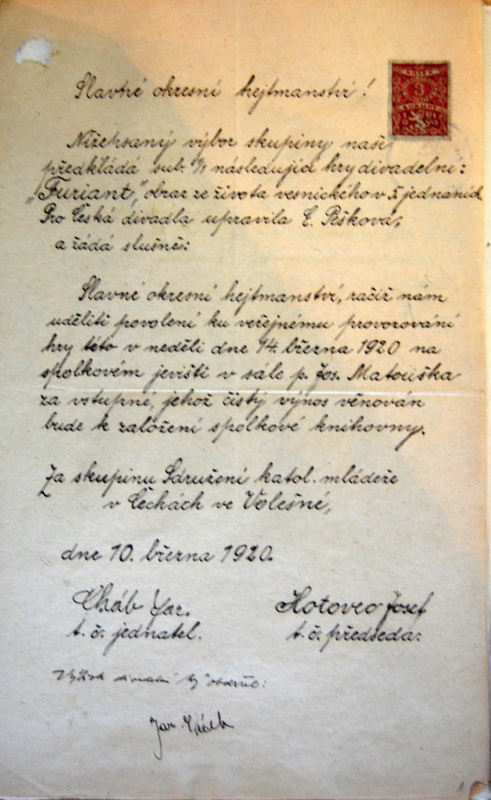 Slavné okresní hejtmanství!
Nížepsaný výbor skupiny naší
předkládá sub. 1/1 následující hry divadelní:
„Furiant", obraz ze života vesnického v jednáních
Pro Česká divadla upravila E. Pešková,
a žádá slušně:
Slavné okresní hejtmanství, račiž nám
uděliti povolení ku veřejnému provozování
hry této v neděli dne 14. března 1920 na
spolkovém jevišti v sále p. Jos. Matouška
za vstupné, jehož čistý výnos věnován
bude k založení spolkové knihovny.
Za skupinu Sdružení katol. mládeže
v Čechách ve Volešné,
dne 10. března 1920.
Cháb Jar. Hotovec Josef
t. č. jednatel. t. č. předseda:
divadelní hry obdržel:
3